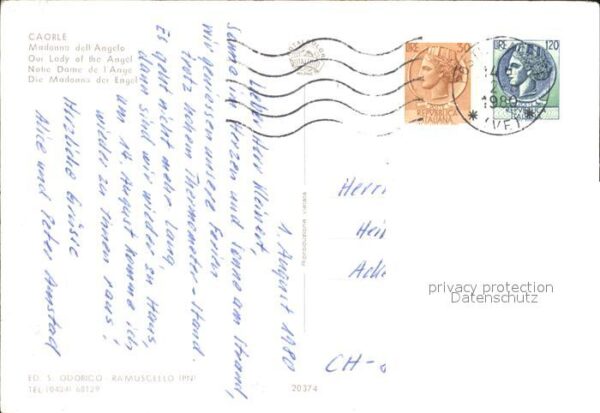 CAORLE
Madonna dell'Angelo
Our Lady of the Angel
Notre Dame de l'Ange
Die Madonna der Engel
1. August 1980
Lieber Herr Kleinert,
Sonne im Herzen und Sonne am Strand,
wir geniessen unsere Ferien
trotz hohem Thermometer-Stand.
Es geht nicht mehr lang,
dann sind wir wieder zu Haus,
am 14. August komme ich
wieder zu Ihnen raus!
Herzliche Grüsse
Alice und Peter Amstad
LIRE 50
REPVBBLICA
ITALIANA
LIRE 120
1980
(VE)
Herrn
Hei
CH-
privacy protection
Datenschutz
ED. S. ODORICO - RAMUSCELLO (PN)
TEL. (0434) 68129
20374